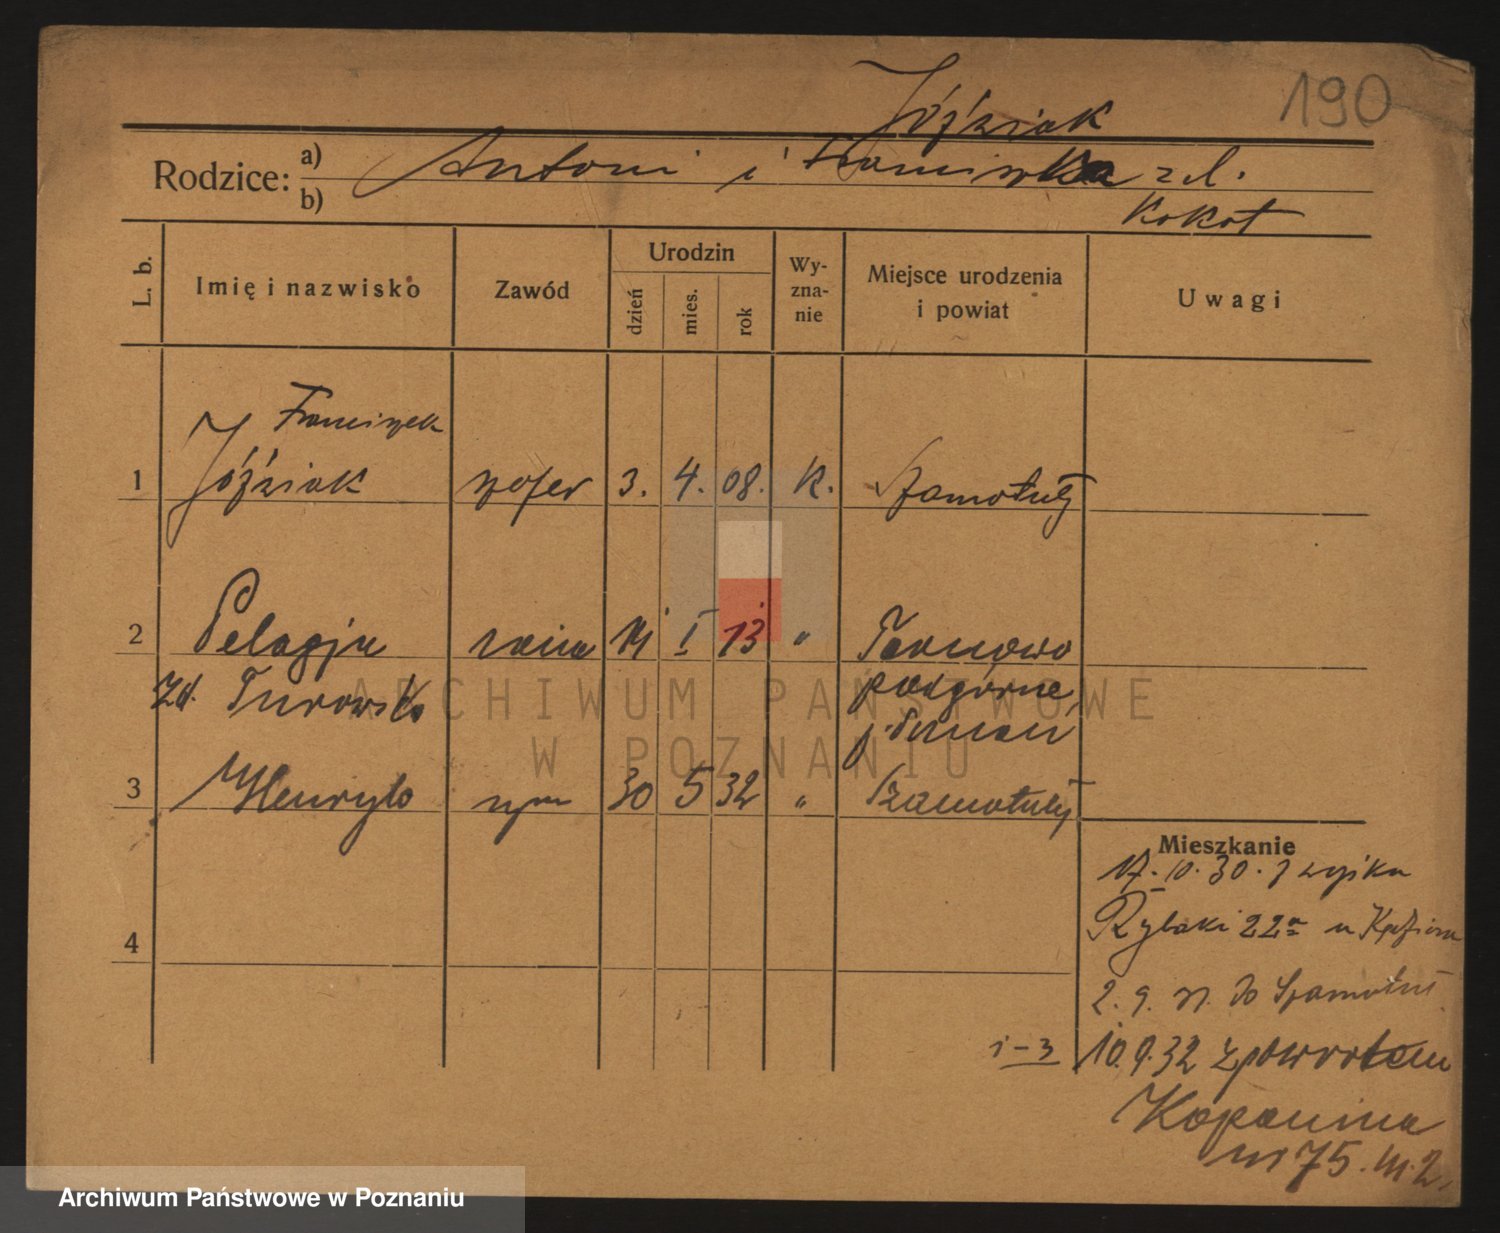 190
Jóźwiak
Rodzice: a) Antoni i Franciszka z d.
b) Kokot
L. b.
Imię i nazwisko
Zawód
Urodzin
dzień
mies.
rok
Wy-
zna-
nie
Miejsce urodzenia
i powiat
Uwagi
Franciszek
1 Jóźwiak szofer 3. 4. 08. K. Szamotuły
2 Pelagja I 13 " Tarnowo
zd. Turowska podgórne
p. Poznań
3 Henryk syn 30 5 32 " Szamotuły
Mieszkanie
17. 10. 30. z wojska
Rybaki 22a u
4
2. 9. 31. do Szamotuł
1-3 10.9.32 z powrotem
Kopanina
nr 75. m. 2.
ARCHIWUM PAŃSTWOWE
W POZNANIU
Archiwum Państwowe w Poznaniu